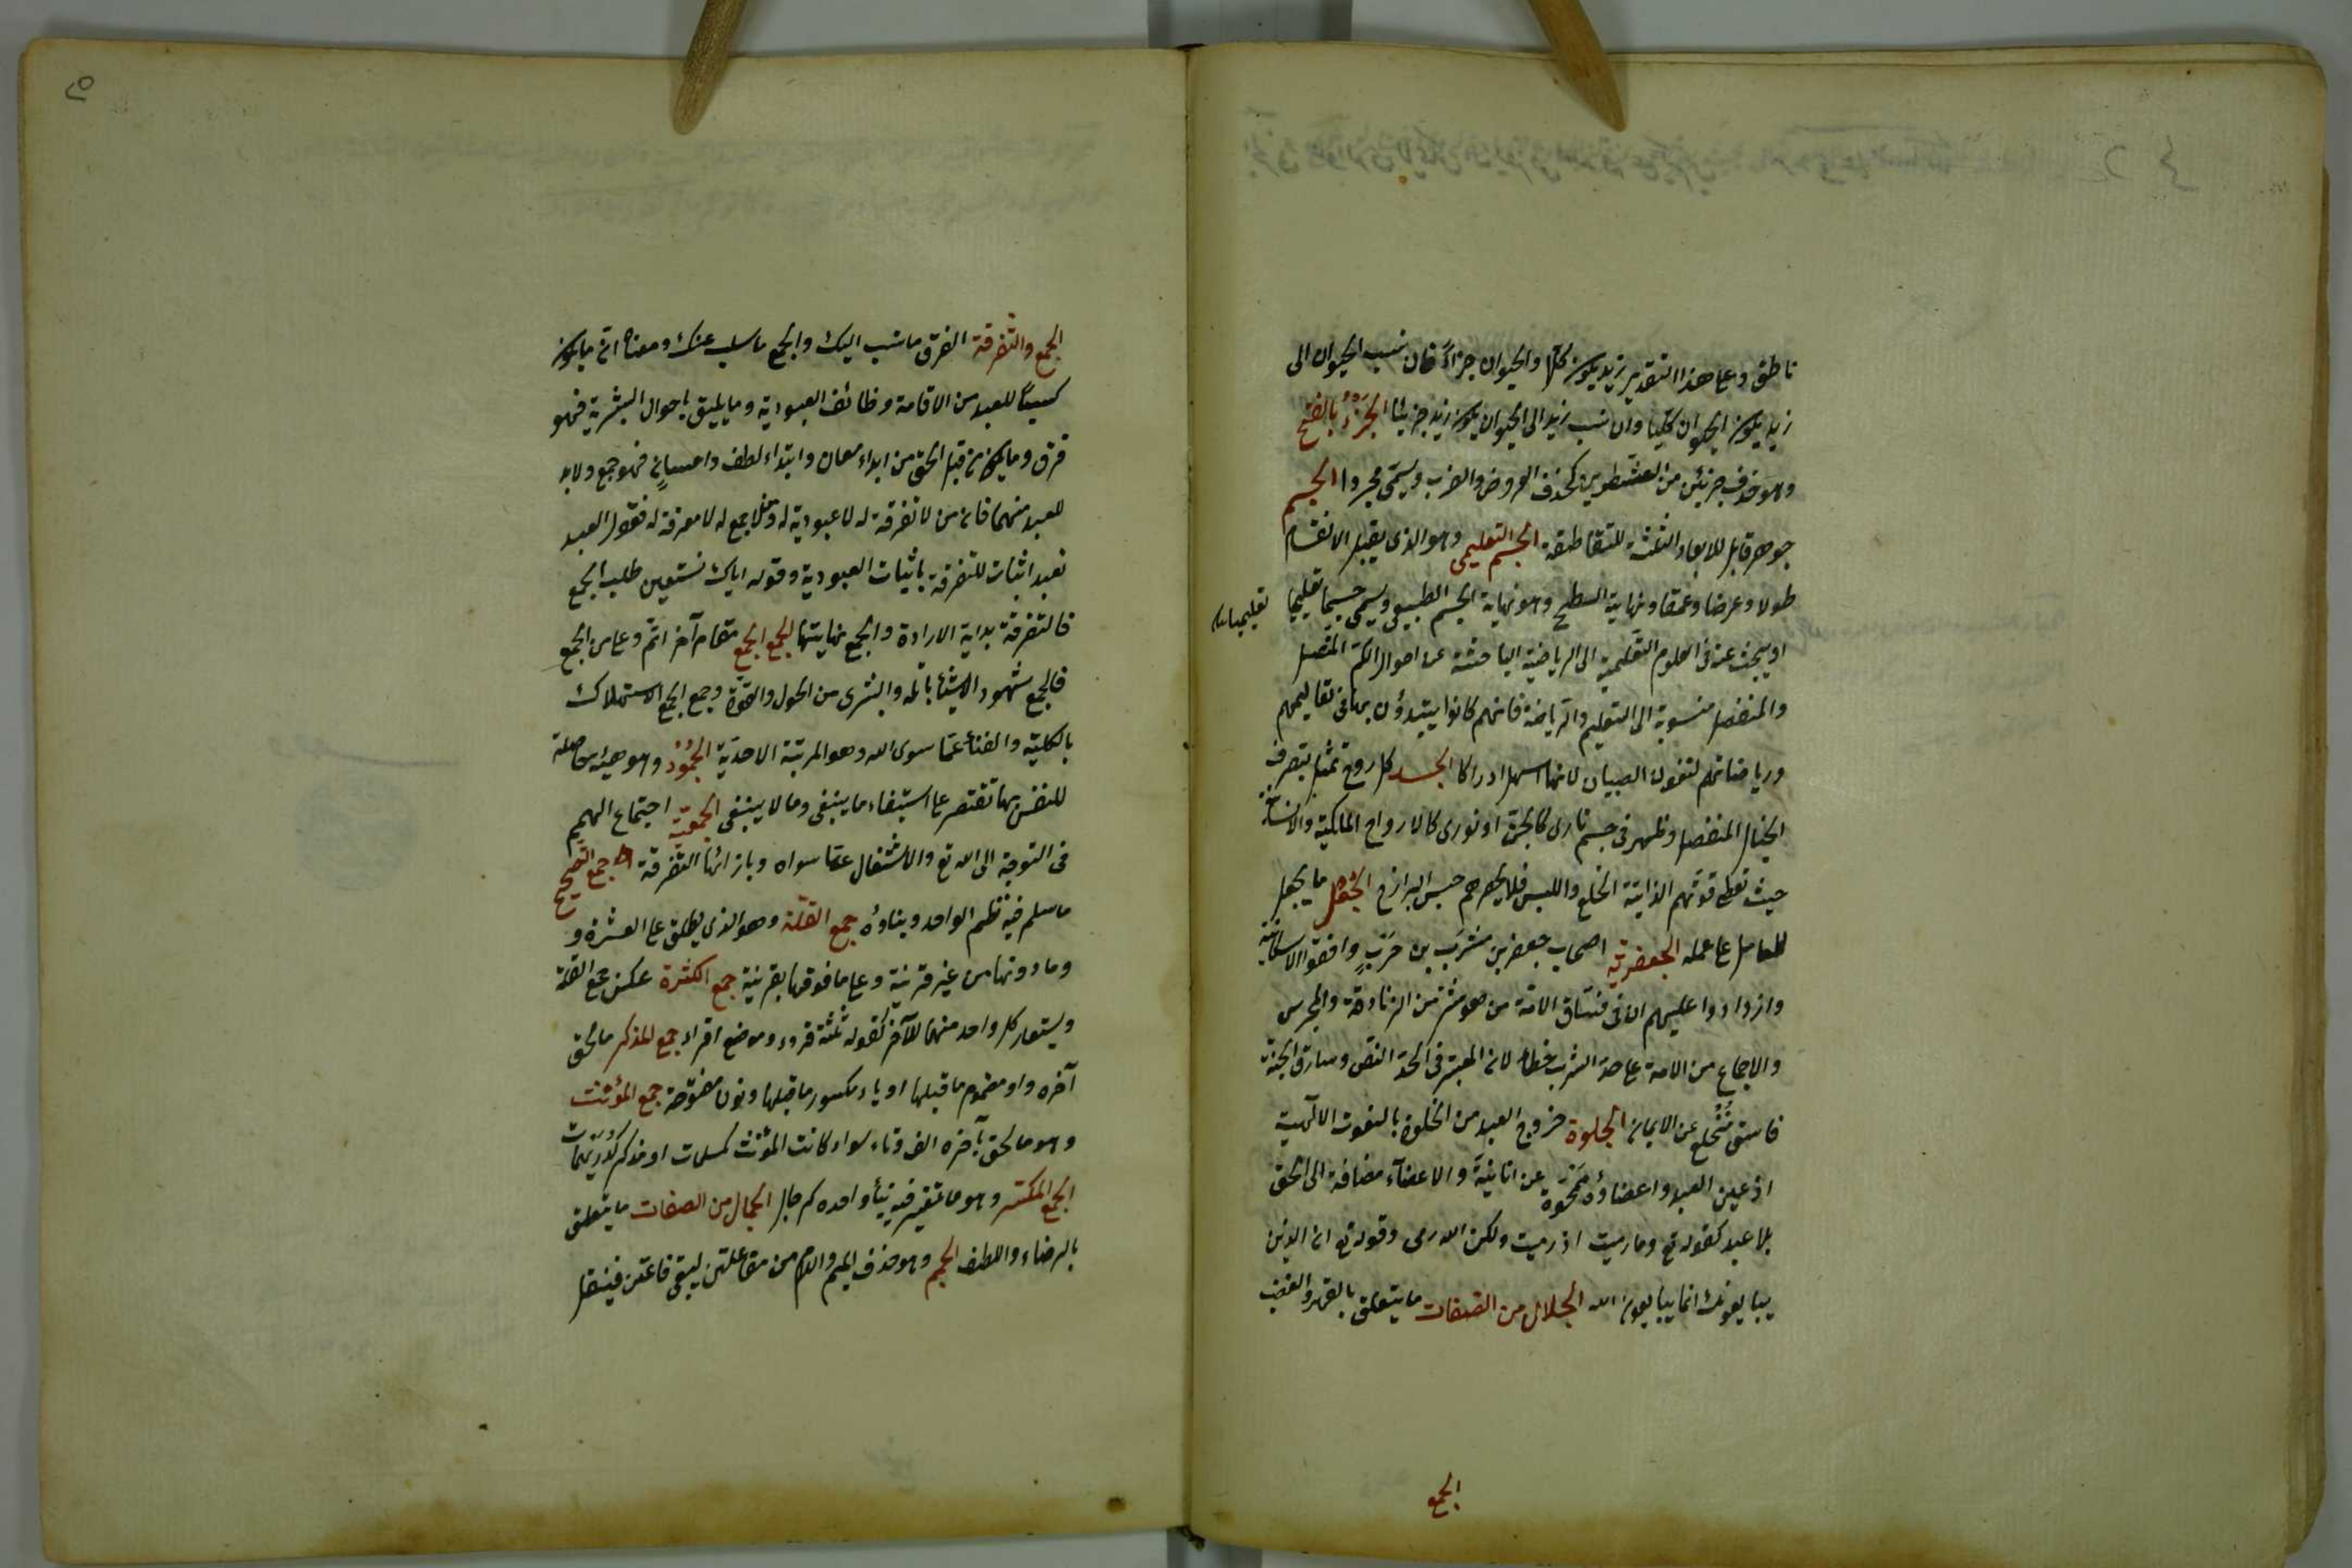 ناطق وعلى هذا التقدير زيد يكون كلا والحيوان جزاءً فان نسب الحيوان الى
زيد يكون الحيوان كليا وان نسب زيد الى الحيوان يكون زيد جزئيا الجَزْءُ بالفتح
وهو حذف جزئين من الشطرين كحذف العروض والضرب ويسمى مجزوا الجسم
جوهر قابل للابعاد الثلثة المتقاطعة الجسم التعليمى وهو الذى يقبل الانقسام
طولا وعرضا وعمقا ونهايته السطح وهو نهاية الجسم الطبيعى ويسمى جسما تعليميا
تعليميا
او يبحث عنه فى العلوم التعليمية اى الرياضية الباحثة عن احوال الكم المتصل
والمنفصل منسوبة الى التعليم والرياضة فانهم كانوا يبتدؤن بها فى تعاليمهم
ورياضاتهم لنفوس الصبيان لانها اسهل ادراكا الجسد كل روح تمثل بتصرف
الخيال المنفصل وظهر فى جسم نارى كالجن او نورى كالارواح الملكية والانسانية
حيث تعطى قوتهم الذاتية الخلع واللبس فلا يحصرهم حبس البرازخ الجُعْل ما يجعل
للعامل على عمله الجعفرية اصحاب جعفر بن مشرب بن حرب وافقوا الاسكافية
وازدادوا عليهم ان فى فساق الامة من هو شر من الزنادقة والمجوس
والاجماع من الامة على حد الشرب خطاء لان المعتبر فى الحد النص وسارق الحبة
فاسق منخلع عن الايمان الجلوة خروج العبد من الخلوة بالنعوت الالهية
اذ عين العبد واعضاؤه ممحوة عن انانية والاعضآء مضافة الى الحق
بلا عبد كقوله تع وما رميت اذ رميت ولكن الله رمى وقوله تع ان الذين
يبايعونك انما يبايعون الله الجلال من الصفات ما يتعلق بالقهر والغضب
الجمع
الجمع والتفرقة الفرق ما نسب اليك والجمع ما سلب عنك ومعناه ان ما يكون
كسبًا للعبد من الاقامة وظائف العبودية وما يليق باحوال البشرية فهو
فرق وما يكون من قبل الحق من ابداء معان وابتداء لطف واحسانٍ فهو جمع ولابد
للعبد منهما فان من لا تفرقة له لا عبودية له ومن لا جمع له لا معرفة له فقول العبد
نعبد اثبات للتفرقة باثبات العبودية وقوله اياك نستعين طلب الجمع
فالتفرقة بداية الارادة والجمع نهايتها الجمع الجمع مقام آخر اتم وعلى من الجمع
فالجمع شهود الاشياء بالله والتبرى من الحول والقوة وجمع الجمع الاستهلاك
بالكلية والفناء عما سوى الله وهو المرتبة الاحدية الجُمُودُ وهو هيئة حاصلة
للنفس بها تقتصر على استيفاء ما ينبغى وما لا ينبغى الجمعية اجتماع الهمم
فى التوجه الى الله تع والاشتغال عما سواه وبازائها التفرقة جمع الصحيح
ما سلم فيه نظم الواحد وبناؤه جمع القلة وهو الذى يطلق على العشرة و
وما دونها من غير قرينة وعلى ما فوقها بقرينة جمع الكثرة عكس جمع القلة
ويستعار كل واحد منهما للآخر كقوله ثلثة قروء وموضع اقراء جمع المذكر ما لحق
آخره واو مضموم ما قبلها او ياء مكسور ما قبلها ونون مفتوحة جمع المؤنث
وهو ما لحق بآخره الف وتاء سواء كانت لمؤنث كمسلمات او مذكر كدريهمات
الجمع المكسر وهو ما تغير فيه بناء واحده كرجال الجمال من الصفات ما يتعلق
بالرضاء واللطف الجمم وهو حذف الميم واللام من مفاعلتن ليبقى فاعتن فينقل